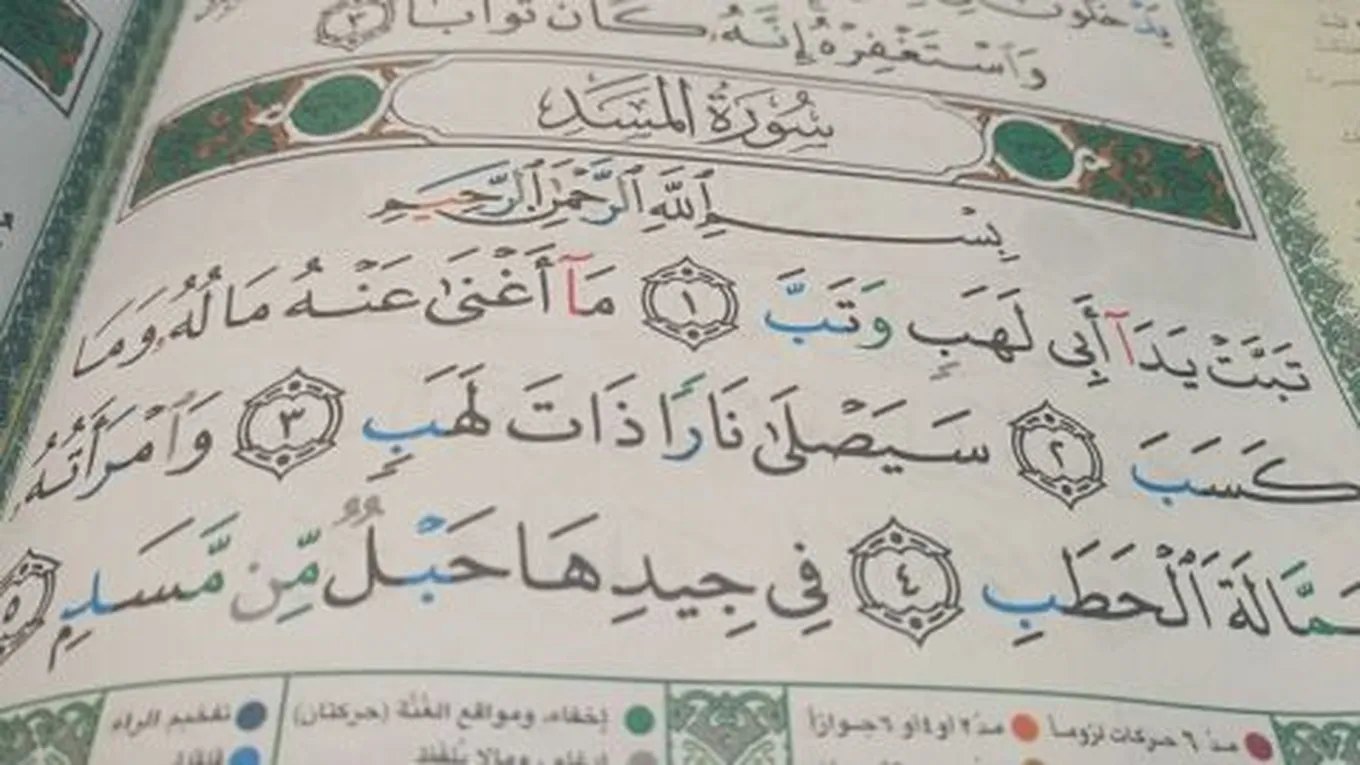 وَٱسۡتَغۡفِرۡهُ إِنَّهُۥ كَانَ تَوَّابَۢا ٣
سُورَةُ المَسَدِ
بِسۡمِ ٱللَّهِ ٱلرَّحۡمَٰنِ ٱلرَّحِيمِ
تَبَّتۡ يَدَآ أَبِي لَهَبٖ وَتَبَّ ١ مَآ أَغۡنَىٰ عَنۡهُ مَالُهُۥ وَمَا
كَسَبَ ٢ سَيَصۡلَىٰ نَارٗا ذَاتَ لَهَبٖ ٣ وَٱمۡرَأَتُهُۥ
حَمَّالَةَ ٱلۡحَطَبِ ٤ فِي جِيدِهَا حَبۡلٞ مِّن مَّسَدِۭ ٥
مدّ ٦ حركات لزوماً مدّ ٢ او ٤ او ٦ جوازاً إخفاء، ومواقع الغُنَّة (حركتان) تفخيم الراء
قلقلة